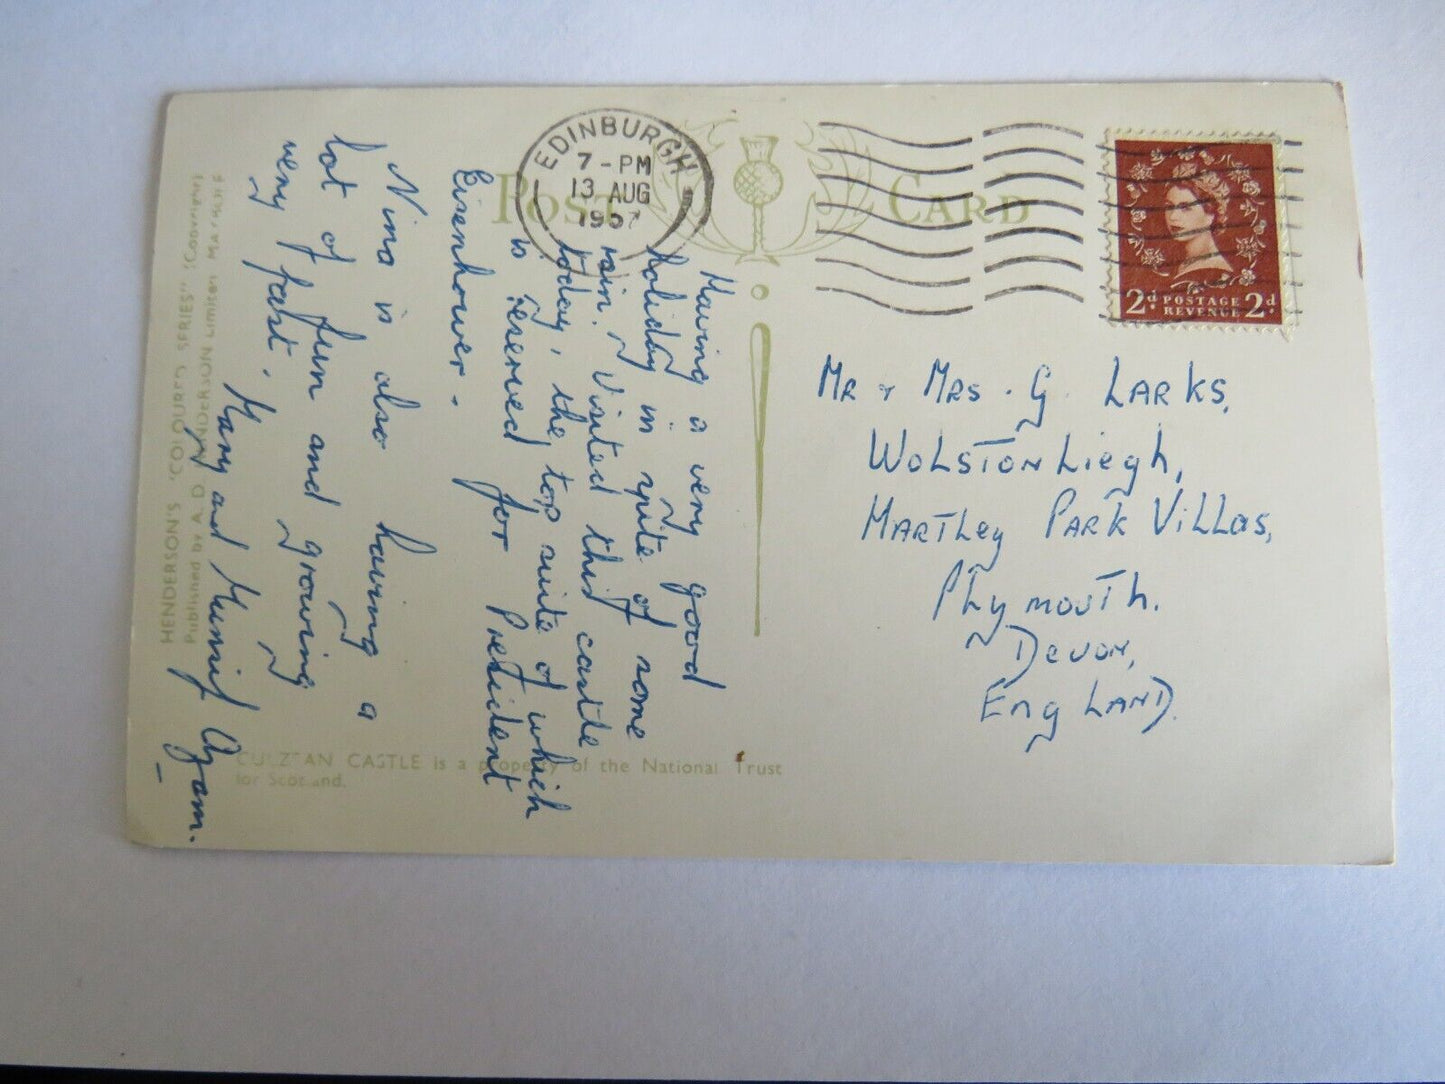 POST CARD
EDINBURGH
7 - PM
13 AUG
1957
2d POSTAGE REVENUE 2d
Having a very good
holiday in spite of some
rain. Visited this castle
today, the top suite of which
is reserved for President
Eisenhower.
Nina is also having a
lot of fun and growing
very fast.
Mary and
MR & MRS. G. LARKS,
WOLSTONLIEGH,
MARTLEY PARK VILLAS,
PLYMOUTH.
DEVON,
ENGLAND.
HENDERSON'S "COLOURED SERIES" (Copyright)
Published by A. D. HENDERSON Limited
CULZEAN CASTLE is a property of the National Trust
for Scotland.